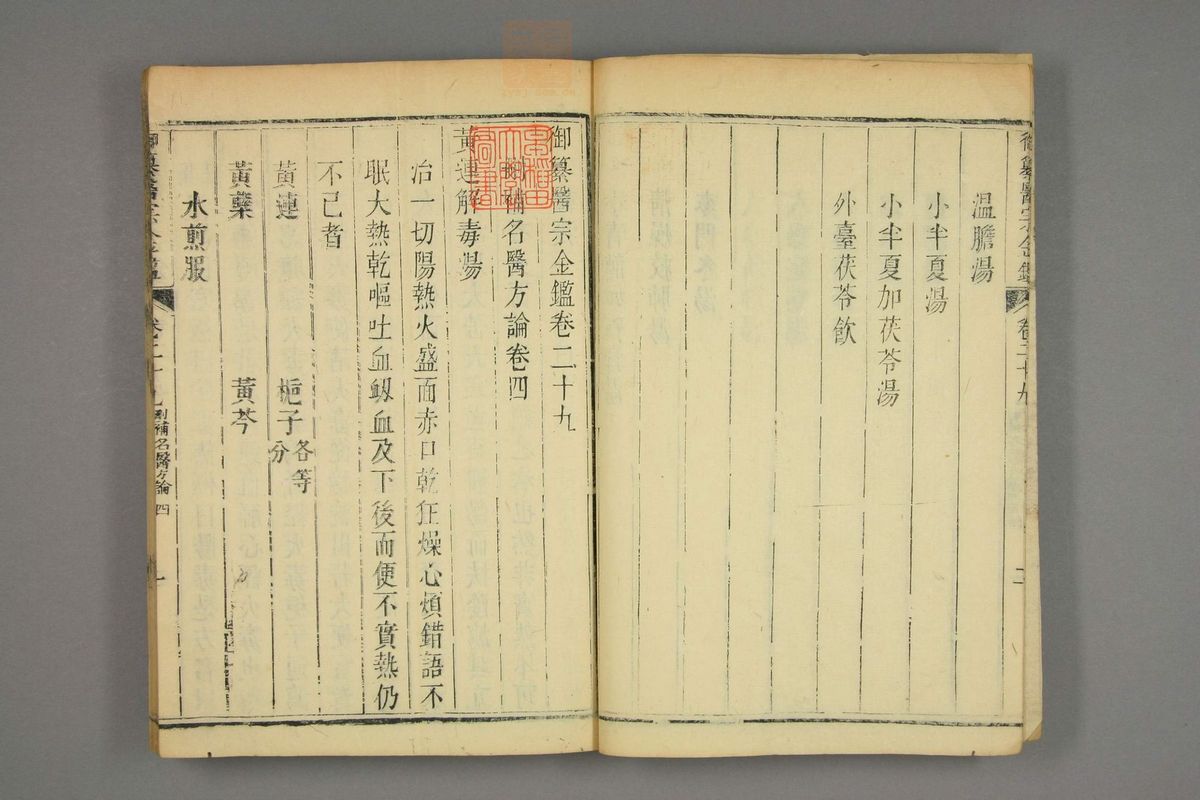 御纂醫宗金鑑 卷二十九 二
溫膽湯
小半夏湯
小半夏加茯苓湯
外臺茯苓飲
御纂醫宗金鑑卷二十九
刪補名醫方論卷四
黃連解毒湯
治一切陽熱火盛面赤口乾狂燥心煩錯語不
眠大熱乾嘔吐血衂血及下後而便不實熱仍
不已者
黃連 梔子各等分
黃蘗 黃芩
水煎服
御纂醫宗金鑑 刪補名醫方論四 一